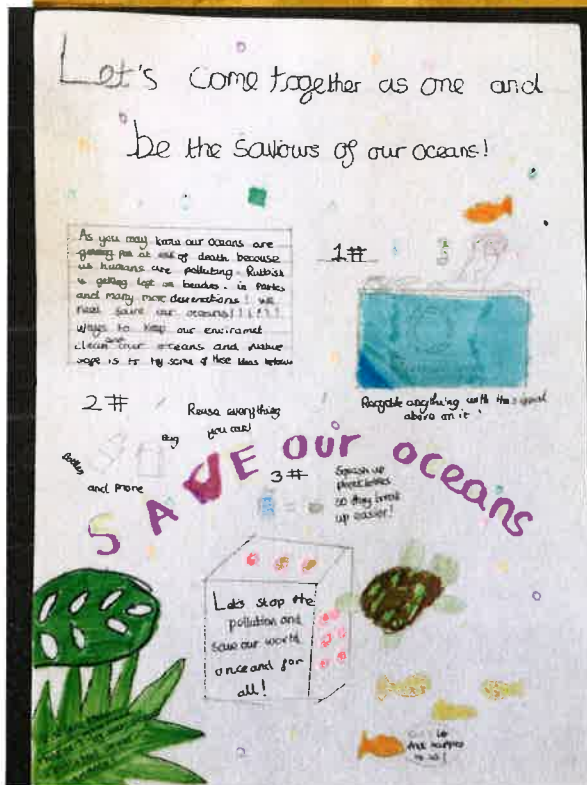 Let's come together as one and
be the saviours of our oceans!
As you may know our oceans are
at risk of death because
us humans are polluting. Rubbish
is getting lost on beaches. in
and many more ! we
need save our oceans!!!!!!
ways to keep our enviromet
clean our oceans and nature
is to try some of these ideas below
1#
Recycle anything with the
above on it!
2#
Reuse everything
you
Bag
and more
SAVE our oceans
3#
Squash up
so they break
up easier!
Let's stop the
pollution and
save our world
once and for
all!
And
to us!